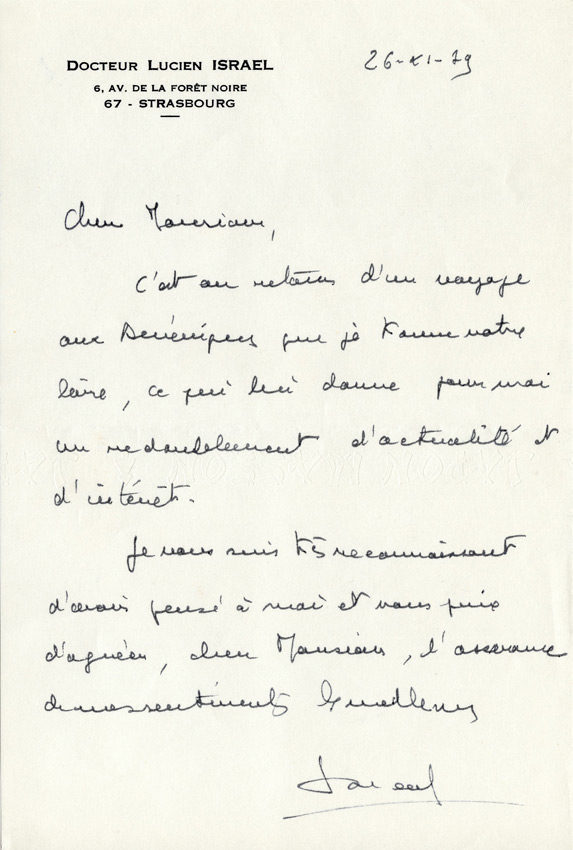 DOCTEUR LUCIEN ISRAEL
6, AV. DE LA FORÊT NOIRE
67 - STRASBOURG
26-XI-79
Cher Monsieur,
C'est au retour d'un voyage
aux que je trouve votre
livre, ce qui lui donne pour moi
un redoublement d'actualité et
d'intérêt.
Je vous suis très reconnaissant
d'avoir pensé à moi et vous prie
d'agréer, cher Monsieur, l'assurance
de mes sentiments les meilleurs
Israel